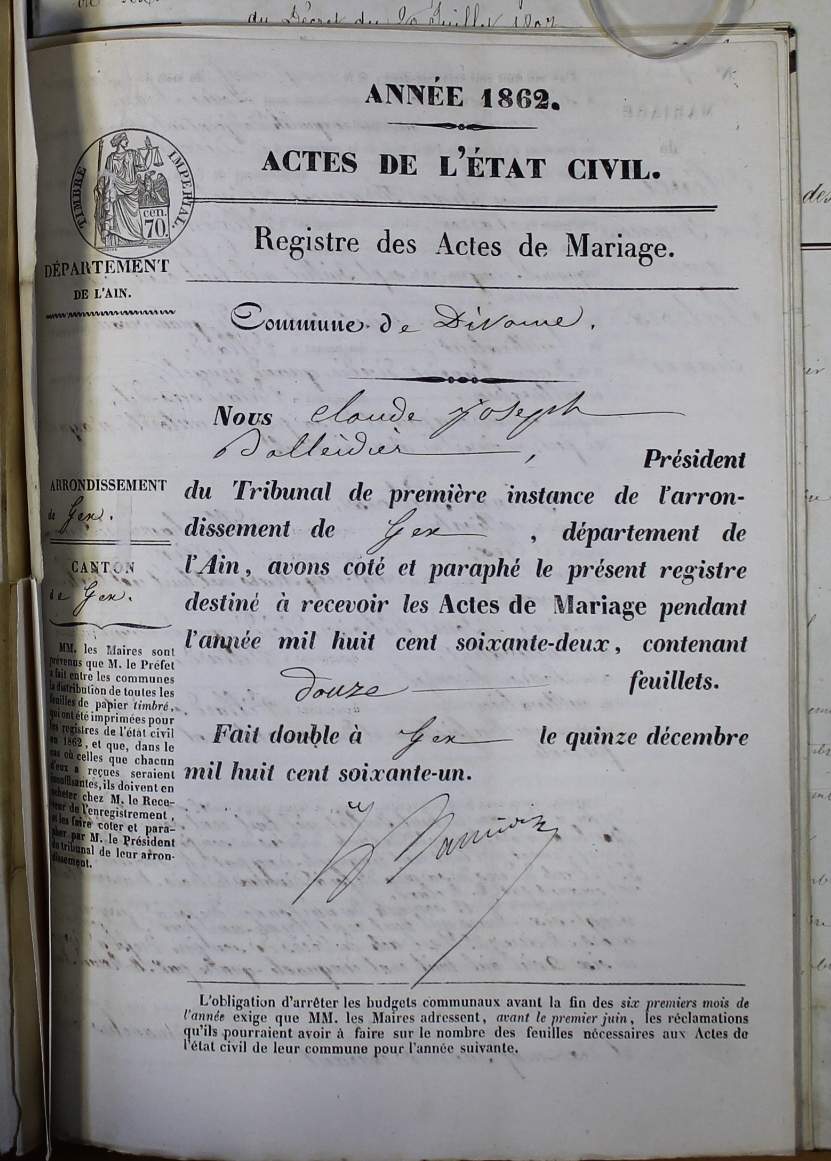 du Décret du 20 Juillet 1807
ANNÉE 1862.
ACTES DE L'ÉTAT CIVIL.
TIMBRE IMPÉRIAL.
cen.
70
DÉPARTEMENT
DE L'AIN.
Registre des Actes de Mariage.
Commune de Divonne.
Nous Claude Joseph
Balleidier, Président
du Tribunal de première instance de l'arron-
dissement de Gex, département de
l'Ain, avons coté et paraphé le présent registre
destiné à recevoir les Actes de Mariage pendant
l'année mil huit cent soixante-deux, contenant
douze feuillets.
Fait double à Gex le quinze décembre
mil huit cent soixante-un.
ARRONDISSEMENT
de Gex.
CANTON
de Gex.
MM. les Maires sont
prévenus que M. le Préfet
a fait entre les communes
la distribution de toutes les
feuilles de papier timbré,
qui ont été imprimées pour
les registres de l'état civil
en 1862, et que, dans le
cas où celles que chacun
d'eux a reçues seraient
insuffisantes, ils doivent en
acheter chez M. le Rece-
veur de l'enregistrement,
et les faire coter et para-
pher par M. le Président
du tribunal de leur arron-
dissement.
L'obligation d'arrêter les budgets communaux avant la fin des six premiers mois de
l'année exige que MM. les Maires adressent, avant le premier juin, les réclamations
qu'ils pourraient avoir à faire sur le nombre des feuilles nécessaires aux Actes de
l'état civil de leur commune pour l'année suivante.